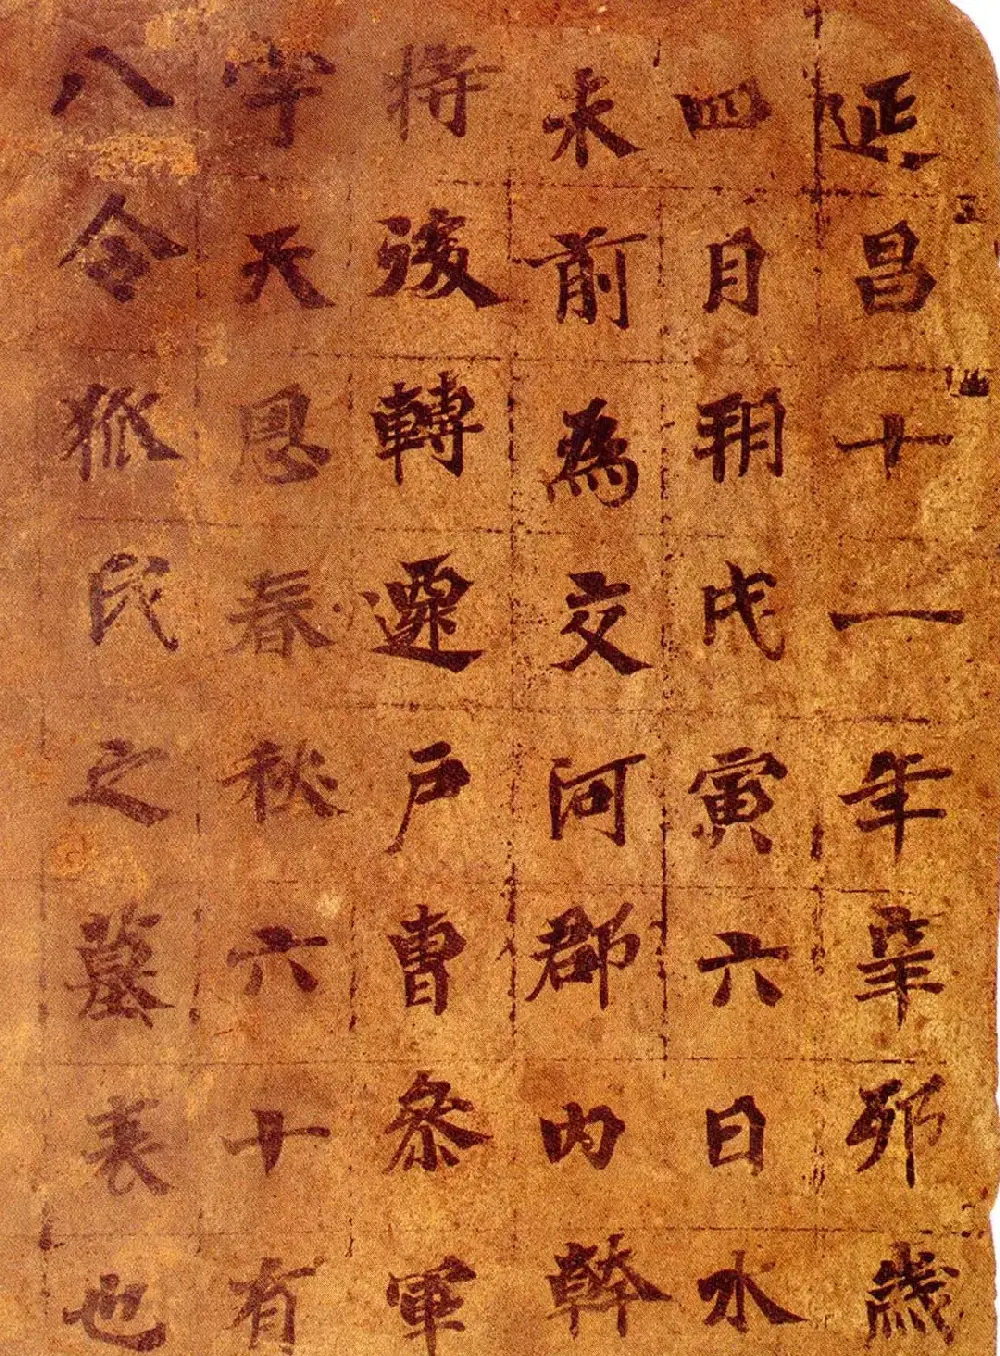 延昌十一年辛卯歲
四月朔戊寅六日水
未前為交河郡內幹
將後轉遷戶曹叅軍
字天恩春秋六十有
八令狐氏之墓表也